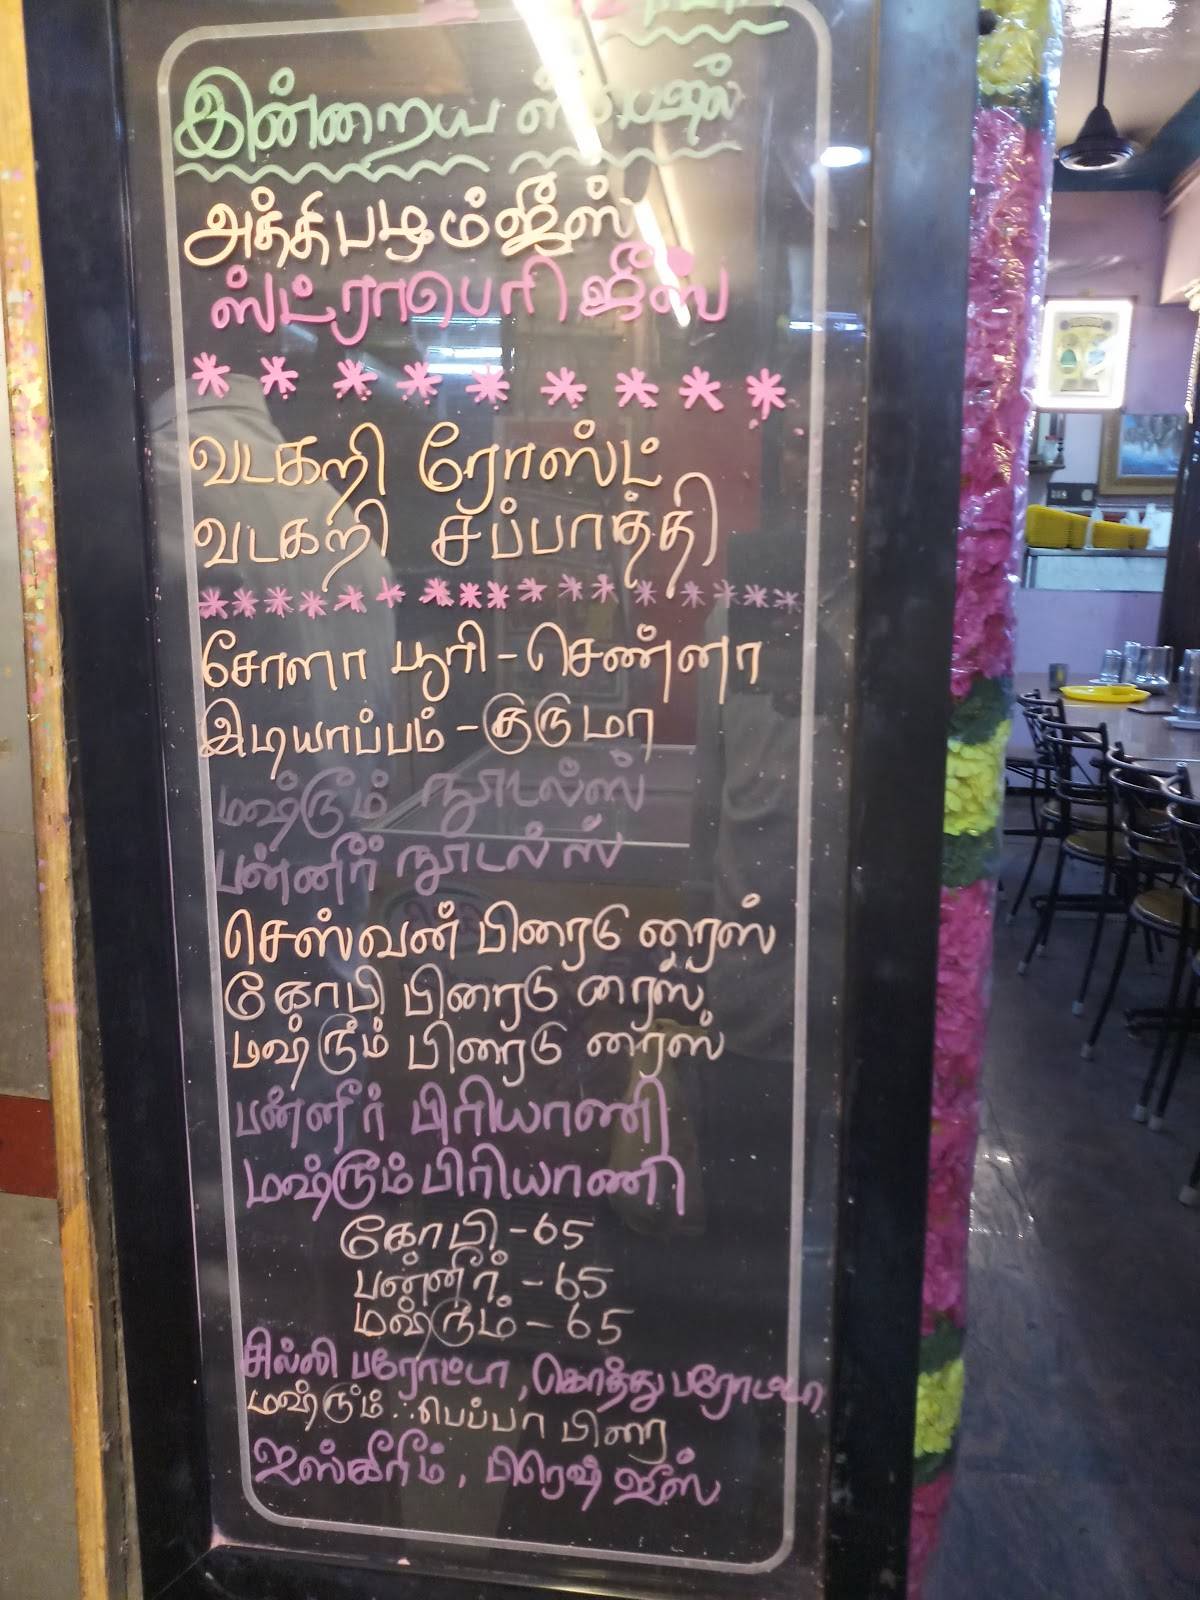 இன்றைய ஸ்பெஷல்
அத்திபழம்ஜீஸ்
ஸ்ட்ராபெரி ஜீஸ்
* * * * * * * * *
வடகறி ரோஸ்ட்
வடகறி சப்பாத்தி
*****************
சோளா பூரி - சென்னா
இடியாப்பம் - குருமா
மஷ்ரூம் நூடல்ஸ்
பன்னீர் நூடல்ஸ்
செஸ்வன் பிரைடு ரைஸ்
கோபி பிரைடு ரைஸ்
மஷ்ரூம் பிரைடு ரைஸ்
பன்னீர் பிரியாணி
மஷ்ரூம் பிரியாணி
கோபி - 65
பன்னீர் - 65
மஷ்ரூம் - 65
சில்லி பரோட்டா, கொத்து பரோட்டா
மஷ்ரூம் பெப்பர் பிரை
ஐஸ்கிரீம், பிரெஷ் ஜீஸ்